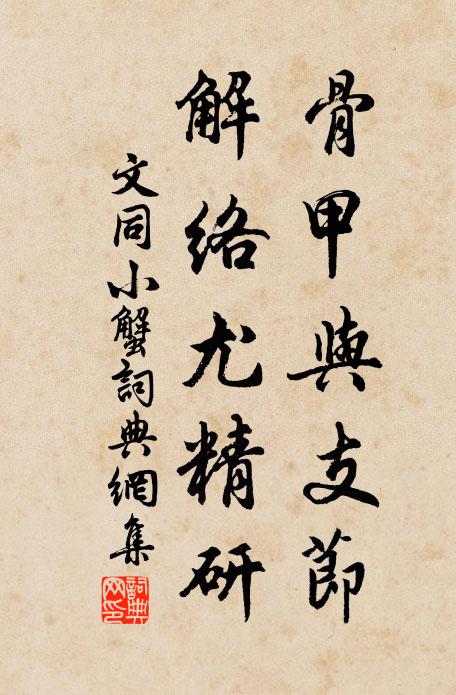 骨甲與支節
解絡尤精研
文同小蟹詞典網集
詞典網印